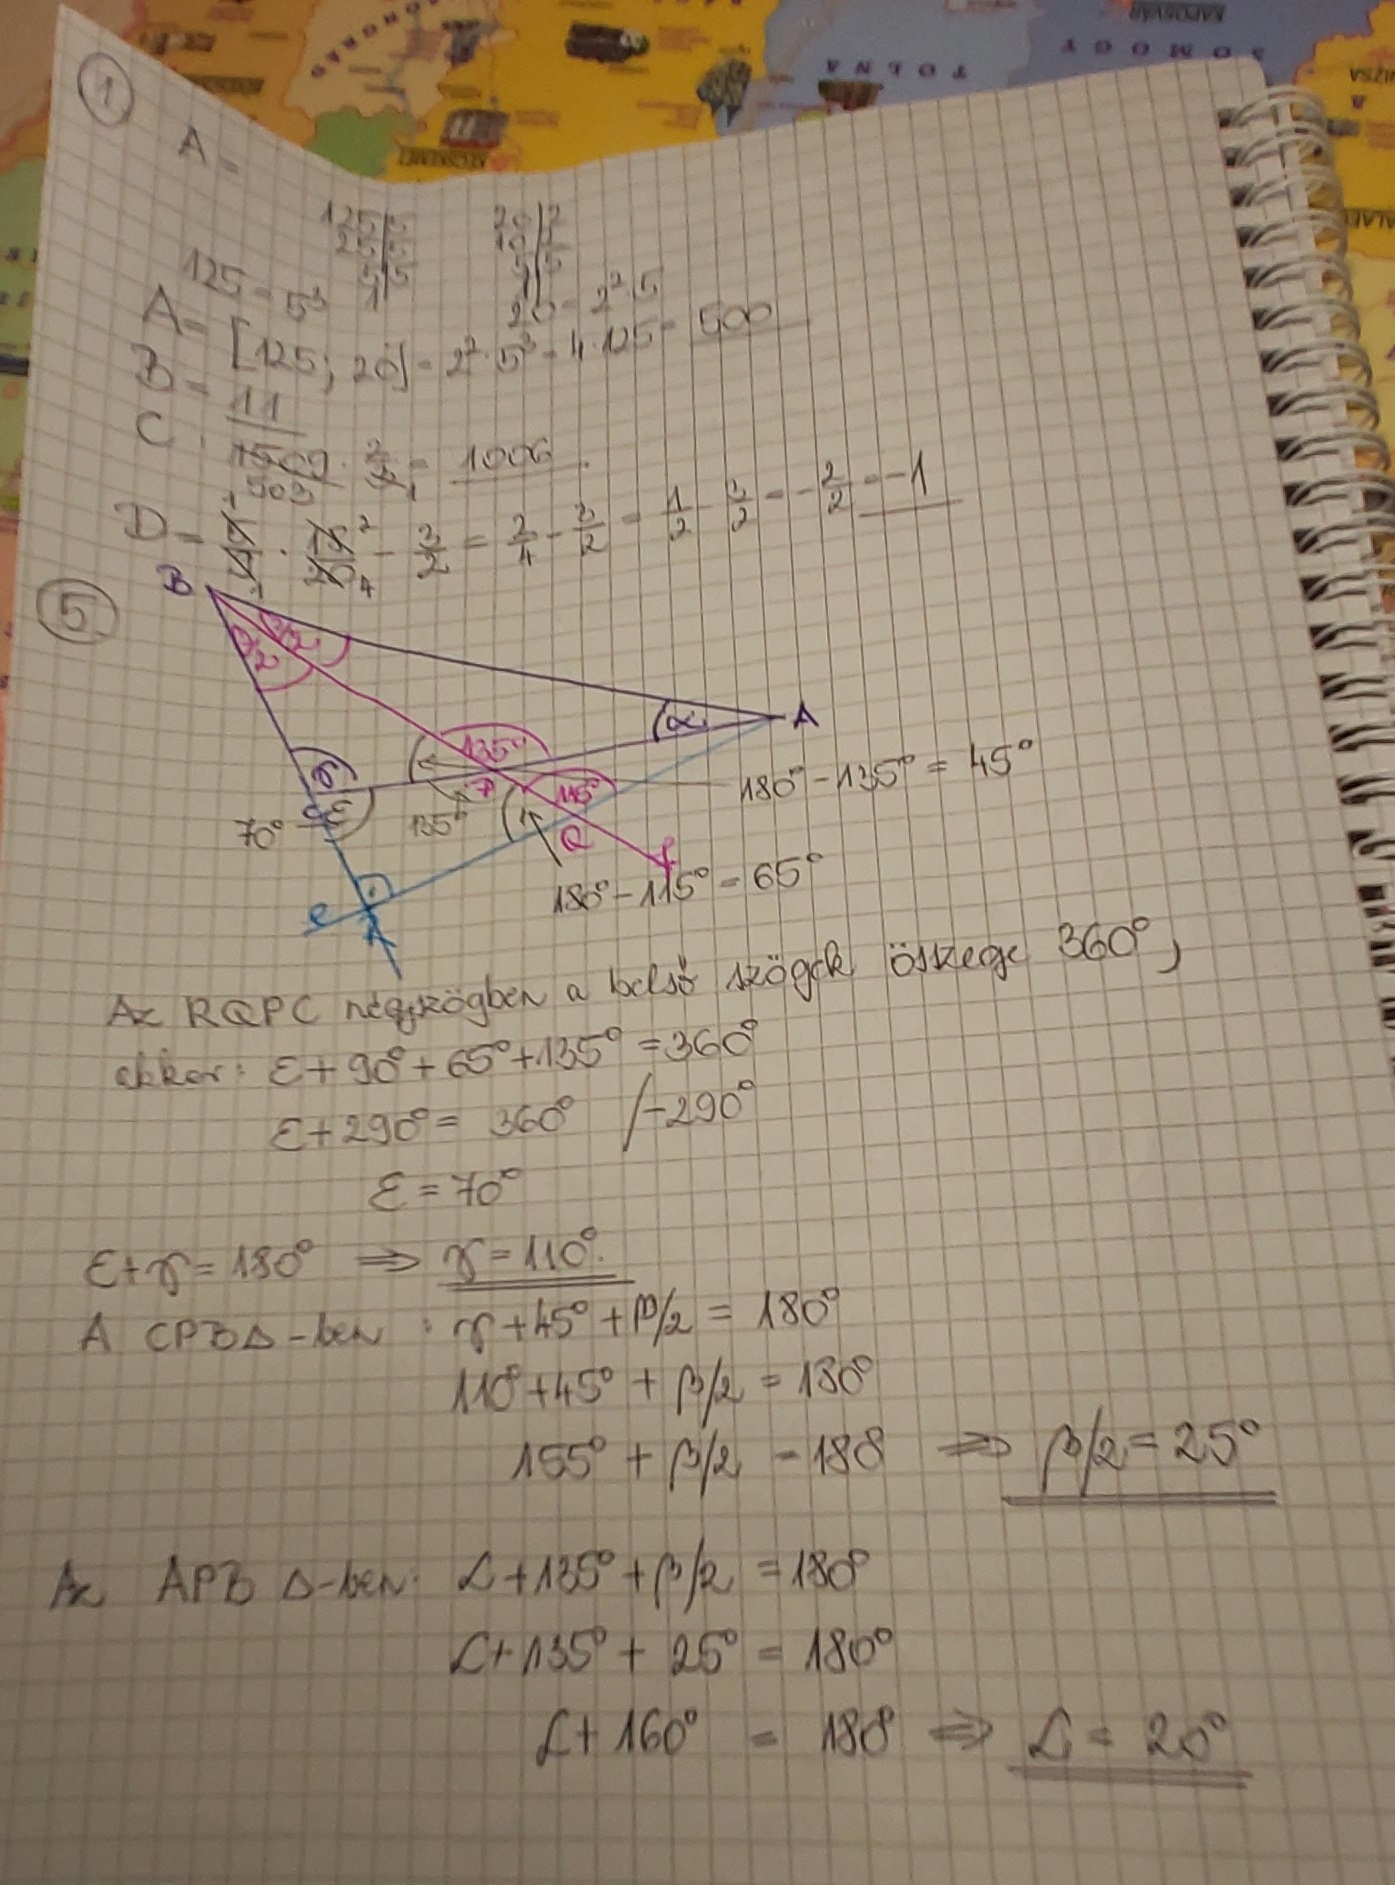 TOLNA
SOMOGY
KAPOSVÁR
1
A =
125 | 5
25 | 5
5 | 5
1
20 | 2
10 | 2
5 | 5
1
125 = 5³
20 = 2² · 5
A = [125; 20] = 2² · 5³ = 4 · 125 = 500
B = 11
C = · 2/ = 1006
503
D = · 2/4 - 3/2 = 2/4 - 3/2 = 1/2 - 3/2 = -2/2 = -1
5
B
β/2
β/2
α
A
135°
γ
P
115°
ε
C
70°
135°
Q
f
180° - 135° = 45°
180° - 115° = 65°
e
R
Az RQPC négyszögben a belső szögek összege 360°,
ekkor: ε + 90° + 65° + 135° = 360°
ε + 290° = 360° /-290°
ε = 70°
ε + γ = 180° ⇒ γ = 110°.
A CPB△-ben: γ + 45° + β/2 = 180°
110° + 45° + β/2 = 180°
155° + β/2 = 180 ⇒ β/2 = 25°
Az APB △-ben: α + 135° + β/2 = 180°
α + 135° + 25° = 180°
α + 160° = 180 ⇒ α = 20°